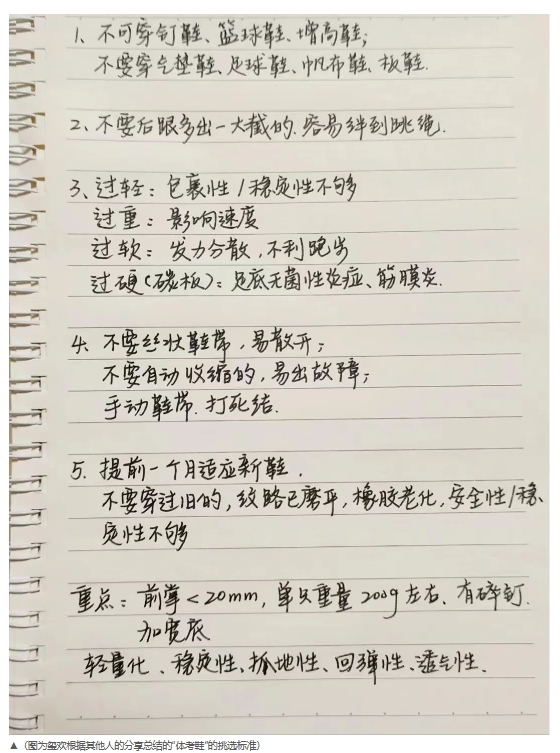 1、不可穿钉鞋、篮球鞋、增高鞋;
不要穿气垫鞋、足球鞋、帆布鞋、板鞋.
2、不要后跟多出一大截的.容易绊到跳绳.
3、过轻:包裹性/稳定性不够
过重:影响速度
过软:发力分散,不利跑步
过硬(碳板):足底无菌性炎症、筋膜炎.
4、不要丝状鞋带,易散开;
不要自动收缩的,易出故障;
手动鞋带.打死结.
5、提前一个月适应新鞋.
不要穿过旧的,纹路已磨平,橡胶老化,安全性/稳
定性不够
重点:前掌<20mm,单只重量200g左右、有碎钉.
加宽底
轻量化、稳定性、抓地性、回弹性、透气性.
▲(图为玺欢根据其他人的分享总结的“体考鞋”的挑选标准)